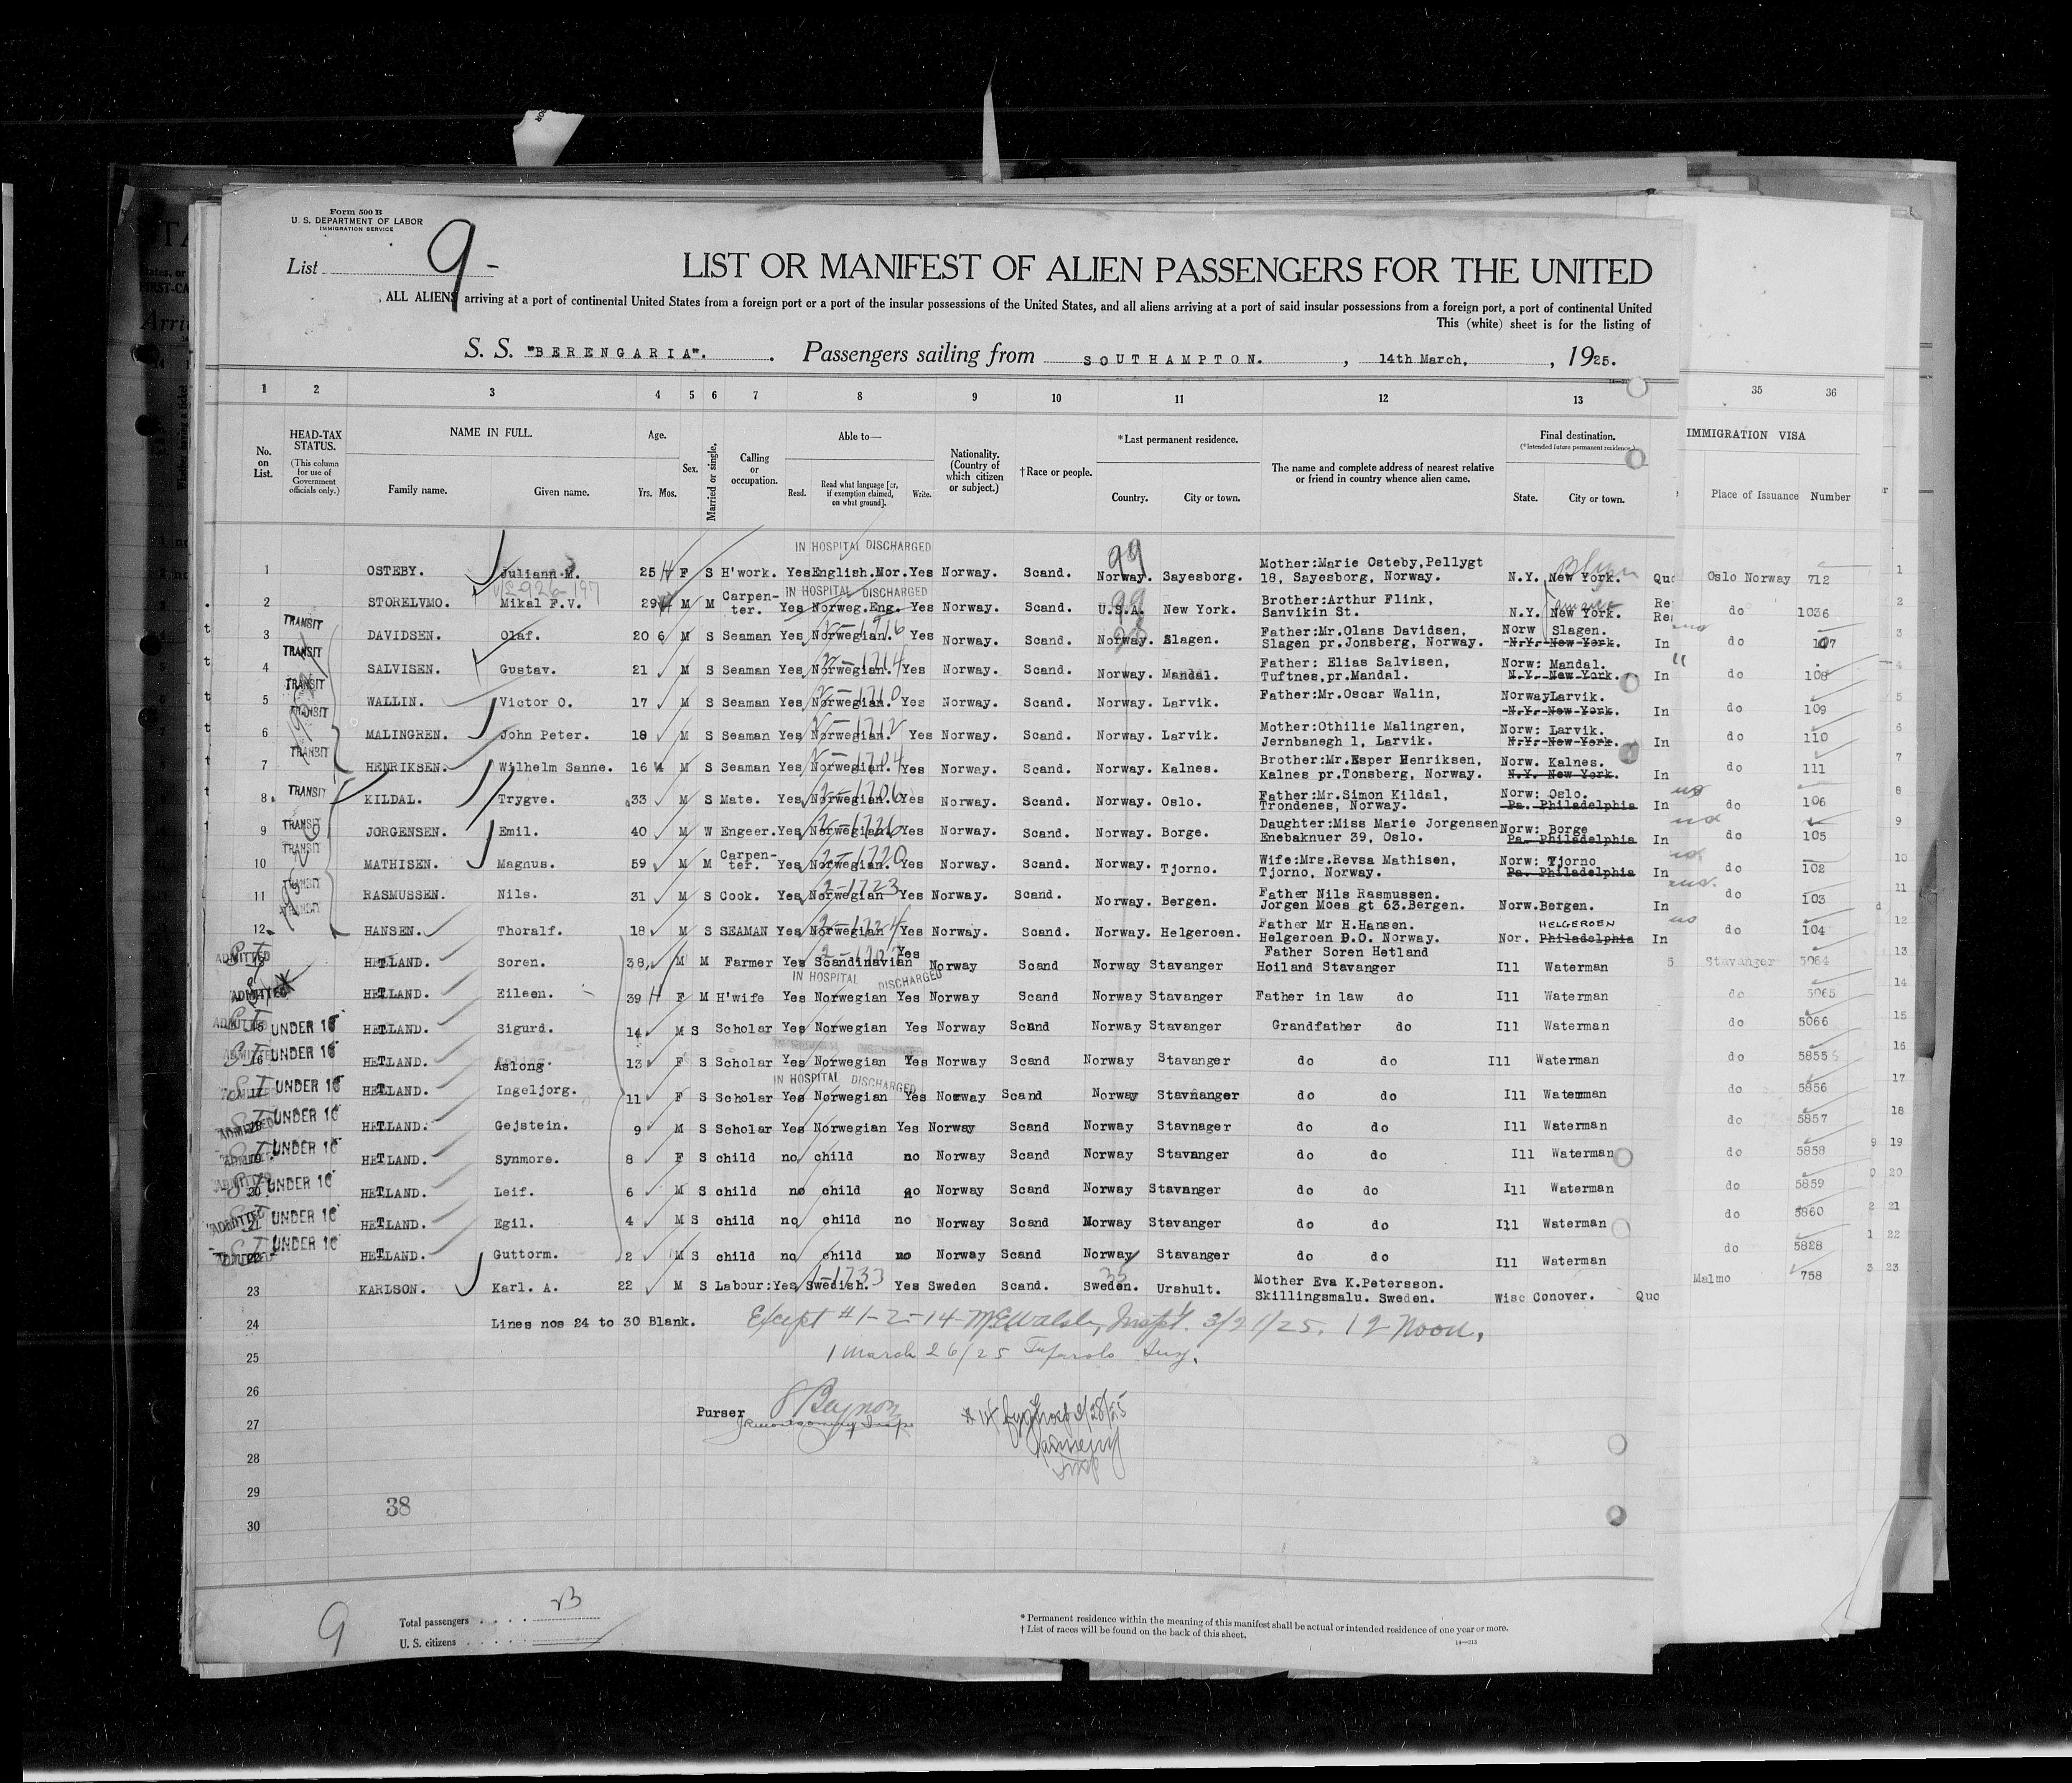 Form 500 B
U. S. DEPARTMENT OF LABOR
IMMIGRATION SERVICE
List 9 -
LIST OR MANIFEST OF ALIEN PASSENGERS FOR THE UNITED
ALL ALIENS arriving at a port of continental United States from a foreign port or a port of the insular possessions of the United States, and all aliens arriving at a port of said insular possessions from a foreign port, a port of continental United
This (white) sheet is for the listing of
S. S. "BERENGARIA". Passengers sailing from SOUTHAMPTON. , 14th March, , 1925.
1 2 3 4 5 6 7 8 9 10 11 12 13 35 36
No. on List. HEAD-TAX STATUS. (This column for use of Government officials only.) NAME IN FULL. Family name. Given name. Age. Yrs. Mos. Sex. Married or single. Calling or occupation. Able to— Read. Read what language [or, if exemption claimed, on what ground]. Write. Nationality. (Country of which citizen or subject.) †Race or people. *Last permanent residence. Country. City or town. The name and complete address of nearest relative or friend in country whence alien came. Final destination. (*Intended future permanent residence.) State. City or town. IMMIGRATION VISA Place of Issuance Number
IN HOSPITAL DISCHARGED 99
1 OSTEBY. Juliann M. 25 F S H'work. Yes English,Nor. Yes Norway. Scand. Norway. Sayesborg. Mother:Marie Osteby,Pellygt 18, Sayesborg, Norway. N.Y. New York. Quo Oslo Norway 712 1
IN HOSPITAL DISCHARGED
2 STORELVMO. Mikal F.V. 29 M M Carpen-ter. Yes Norweg.Eng. Yes Norway. Scand. U.S.A. New York. Brother:Arthur Flink, Sanvikin St. N.Y. New York. Re do 1036 2
TRANSIT
3 DAVIDSEN. Olaf. 20 6 M S Seaman Yes Norwegian. Yes Norway. Scand. Norway. Slagen. Father:Mr.Olans Davidsen, Slagen pr.Jonsberg, Norway. Norw Slagen. N.Y. New York. In do 107 3
TRANSIT
4 SALVISEN. Gustav. 21 M S Seaman Yes Norwegian. Yes Norway. Scand. Norway. Mandal. Father: Elias Salvisen, Tuftnes,pr.Mandal. Norw: Mandal. N.Y. New York. In do 108 4
TRANSIT
5 WALLIN. Victor O. 17 M S Seaman Yes Norwegian. Yes Norway. Scand. Norway. Larvik. Father:Mr.Oscar Walin, Norway Larvik. N.Y. New York. In do 109 5
TRANSIT
6 MALINGREN. John Peter. 18 M S Seaman Yes Norwegian. Yes Norway. Scand. Norway. Larvik. Mother:Othilie Malingren, Jernbanegh 1, Larvik. Norw: Larvik. N.Y. New York. In do 110 6
TRANSIT
7 HENRIKSEN. Wilhelm Sanne. 16 M S Seaman Yes Norwegian. Yes Norway. Scand. Norway. Kalnes. Brother:Mr.Esper Henriksen, Kalnes pr.Tonsberg, Norway. Norw. Kalnes. N.Y. New York. In do 111 7
TRANSIT
8 KILDAL. Trygve. 33 M S Mate. Yes Norwegian. Yes Norway. Scand. Norway. Oslo. Father:Mr.Simon Kildal, Trondenes, Norway. Norw: Oslo. Pa. Philadelphia In do 106 8
TRANSIT
9 JORGENSEN. Emil. 40 M W Engeer. Yes Norwegian. Yes Norway. Scand. Norway. Borge. Daughter:Miss Marie Jorgensen Enebaknuer 39, Oslo. Norw: Borge Pa. Philadelphia In do 105 9
TRANSIT
10 MATHISEN. Magnus. 59 M M Carpen-ter. Yes Norwegian. Yes Norway. Scand. Norway. Tjorno. Wife:Mrs.Revsa Mathisen, Tjorno, Norway. Norw: Tjorno Pa. Philadelphia In do 102 10
TRANSIT
11 RASMUSSEN. Nils. 31 M S Cook. Yes Norwegian Yes Norway. Scand. Norway. Bergen. Father Nils Rasmussen. Jorgen Moes gt 63.Bergen. Norw.Bergen. In do 103 11
TRANSIT
12 HANSEN. Thoralf. 18 M S SEAMAN Yes Norwegian Yes Norway. Scand. Norway. Helgeroen. Father Mr H.Hansen. Helgeroen P.O. Norway. Nor. HELGEROEN Philadelphia In do 104 12
ADMITTED
13 HETLAND. Soren. 38 M M Farmer Yes Scandinavian Yes Norway Scand Norway Stavanger Father Soren Hetland Hoiland Stavanger Ill Waterman Stavanger 5064 13
IN HOSPITAL DISCHARGED
ADMITTED HETLAND. Eileen. 39 F M H'wife Yes Norwegian Yes Norway Scand Norway Stavanger Father in law do Ill Waterman do 5065 14
ADMITTED 15 UNDER 16 HETLAND. Sigurd. 14 M S Scholar Yes Norwegian Yes Norway Scand Norway Stavanger Grandfather do Ill Waterman do 5066 15
ADMITTED 16 UNDER 16 HETLAND. Aslong. 13 F S Scholar Yes Norwegian Yes Norway Scand Norway Stavanger do do Ill Waterman do 5855 16
IN HOSPITAL DISCHARGED
17 UNDER 16 HETLAND. Ingeljorg. 11 F S Scholar Yes Norwegian Yes Norway Scand Norway Stavnanger do do Ill Waterman do 5856 17
ADMITTED UNDER 16 HETLAND. Gejstein. 9 M S Scholar Yes Norwegian Yes Norway Scand Norway Stavnager do do Ill Waterman do 5857 18
UNDER 16 HETLAND. Synmore. 8 F S child no child no Norway Scand Norway Stavanger do do Ill Waterman do 5858 19
ADMITTED 20 UNDER 16 HETLAND. Leif. 6 M S child no child no Norway Scand Norway Stavanger do do Ill Waterman do 5859 20
ADMITTED 21 UNDER 16 HETLAND. Egil. 4 M S child no child no Norway Scand Norway Stavanger do do Ill Waterman do 5860 21
22 UNDER 16 HETLAND. Guttorm. 2 M S child no child no Norway Scand Norway Stavanger do do Ill Waterman do 5828 22
23 KARLSON. Karl. A. 22 M S Labour: Yes Swedish. Yes Sweden Scand. Sweden. Urshult. Mother Eva K.Petersson. Skillingsmalu. Sweden. Wisc Conover. Quo Malmo 758 23
24 Lines nos 24 to 30 Blank. Except # 1-2-14 3/21/25. 12 Noon,
25 1 March 26/25
26
27 Purser
28
29
30
38
9
Total passengers . . . . 23
U. S. citizens . . . . .
* Permanent residence within the meaning of this manifest shall be actual or intended residence of one year or more.
† List of races will be found on the back of this sheet.
14—213